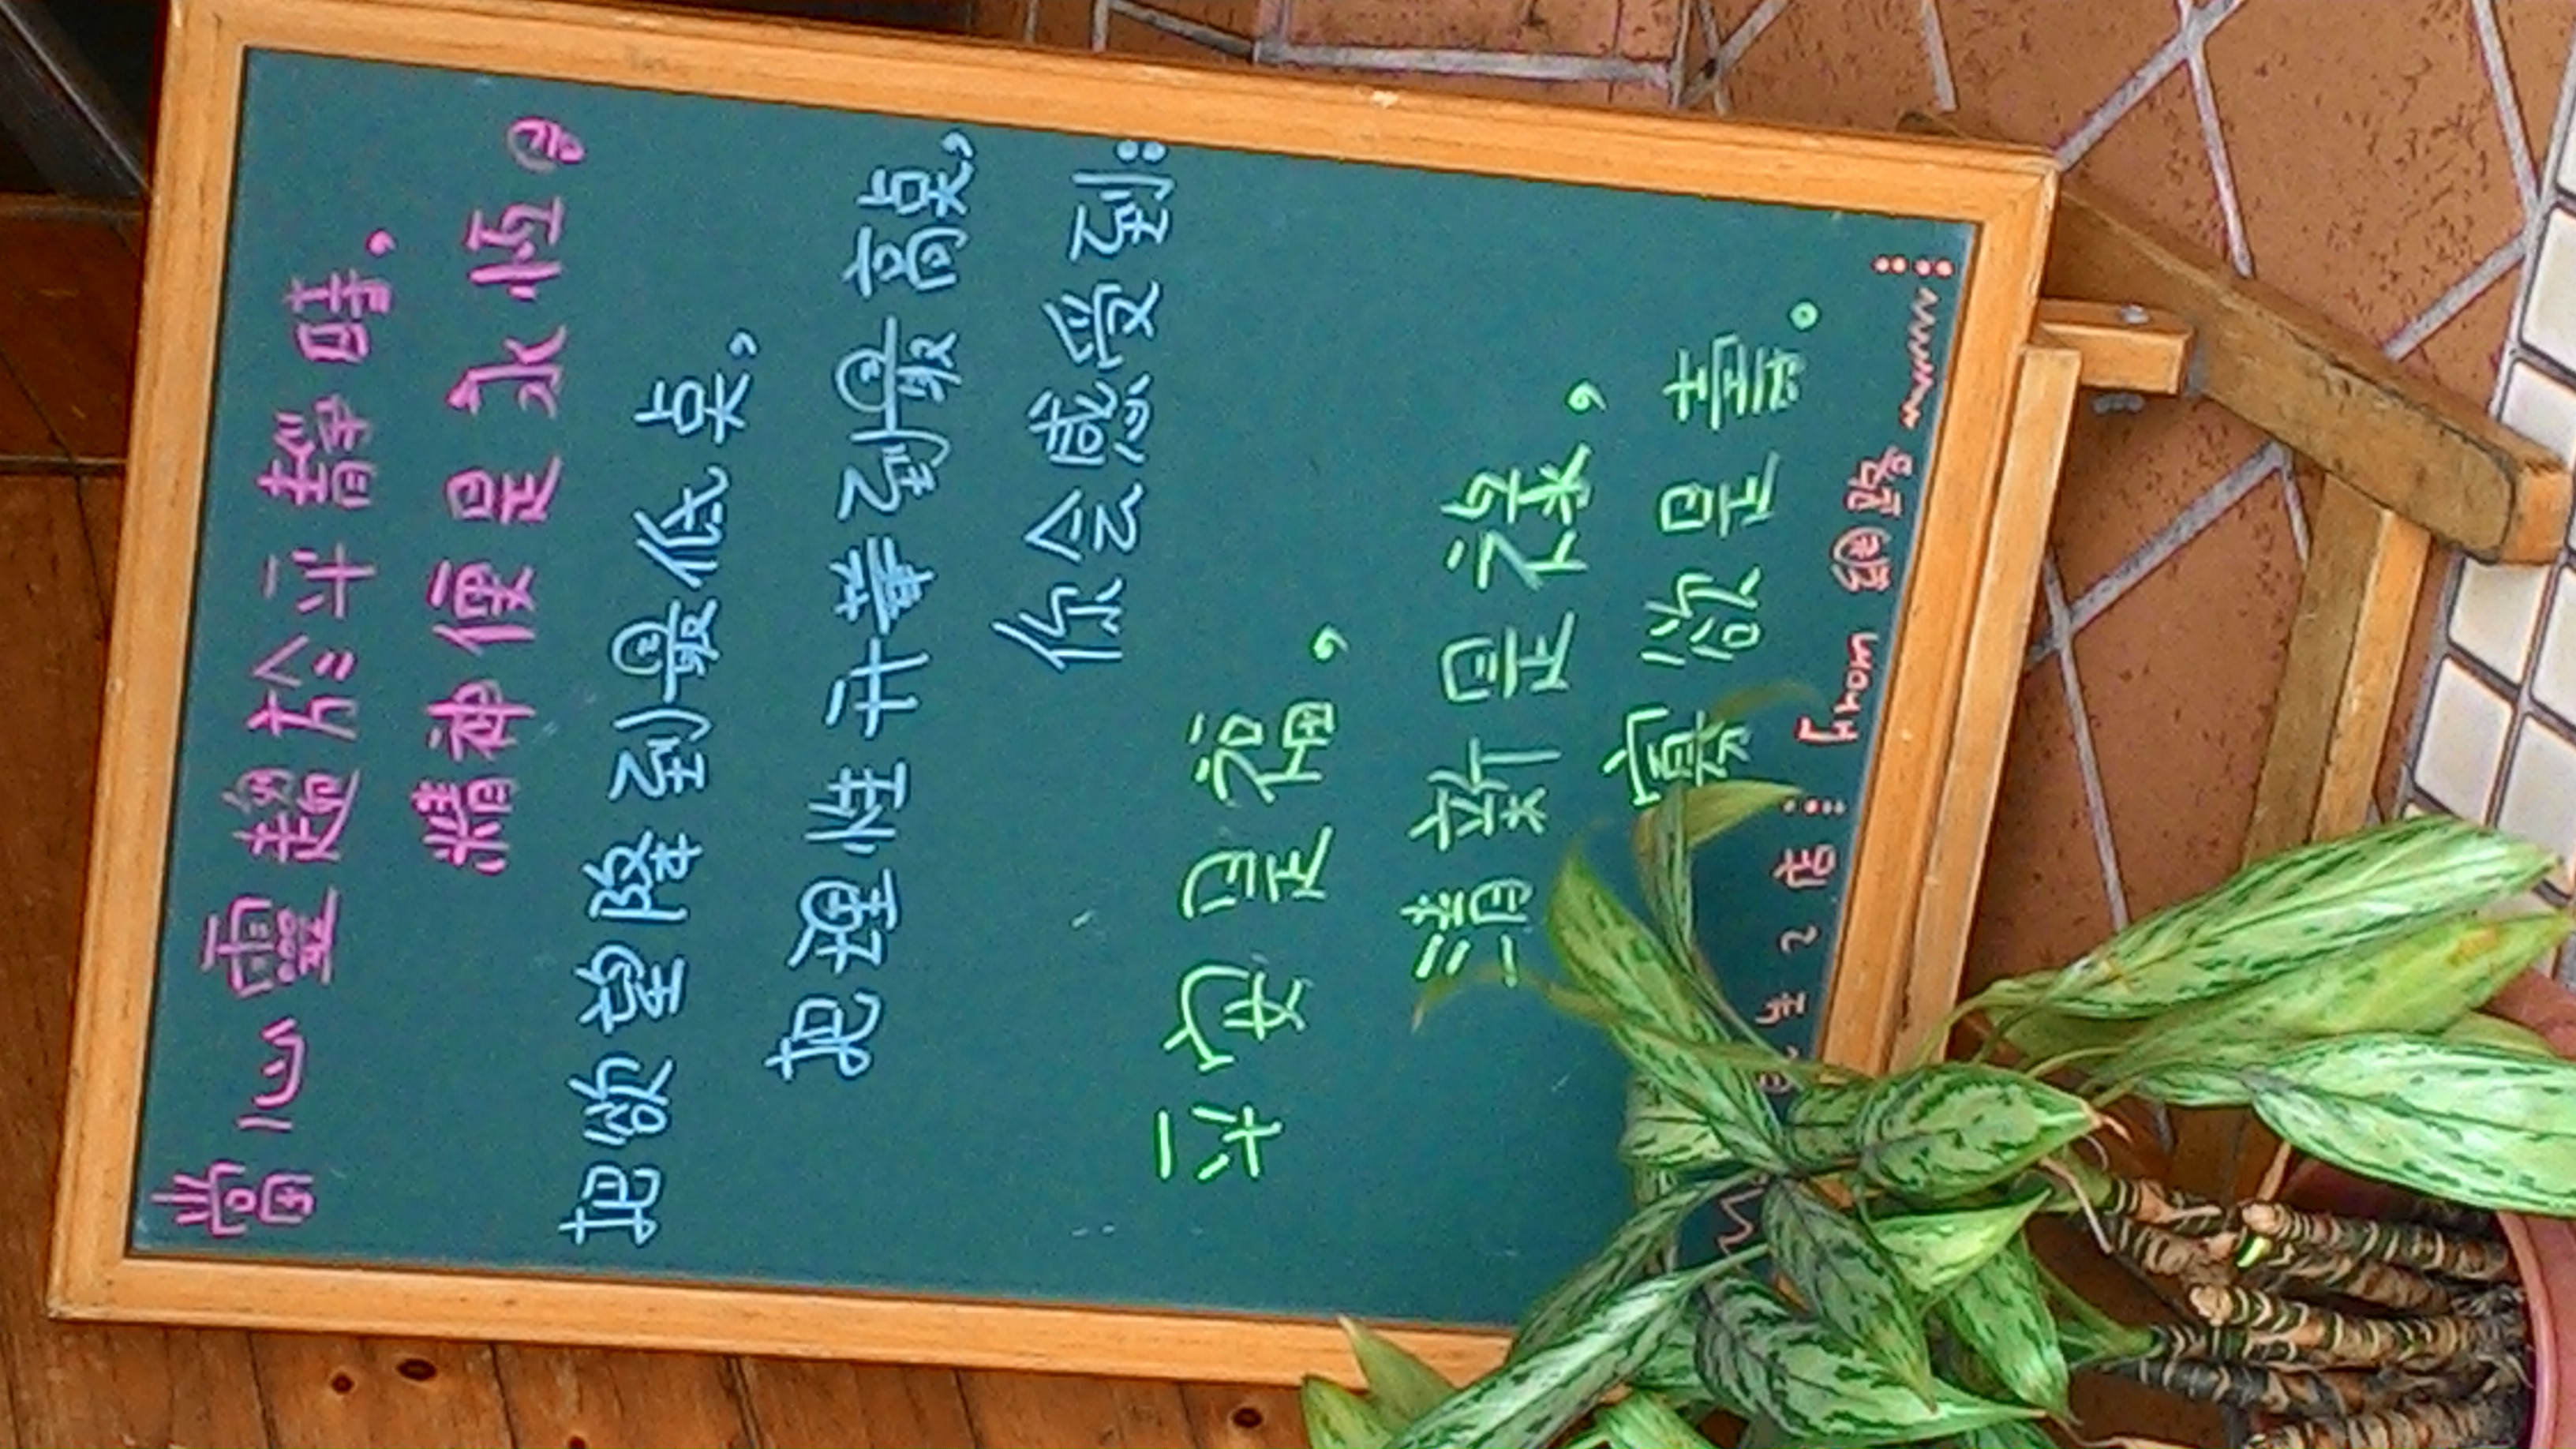 當心靈趨於平靜時，
精神便是永恆。
把欲望降到最低点，
把理性开華到最高点，
你会感受到：
平安是福，
清新是祿，
寡欲是壽。
生2店⋮From 網路